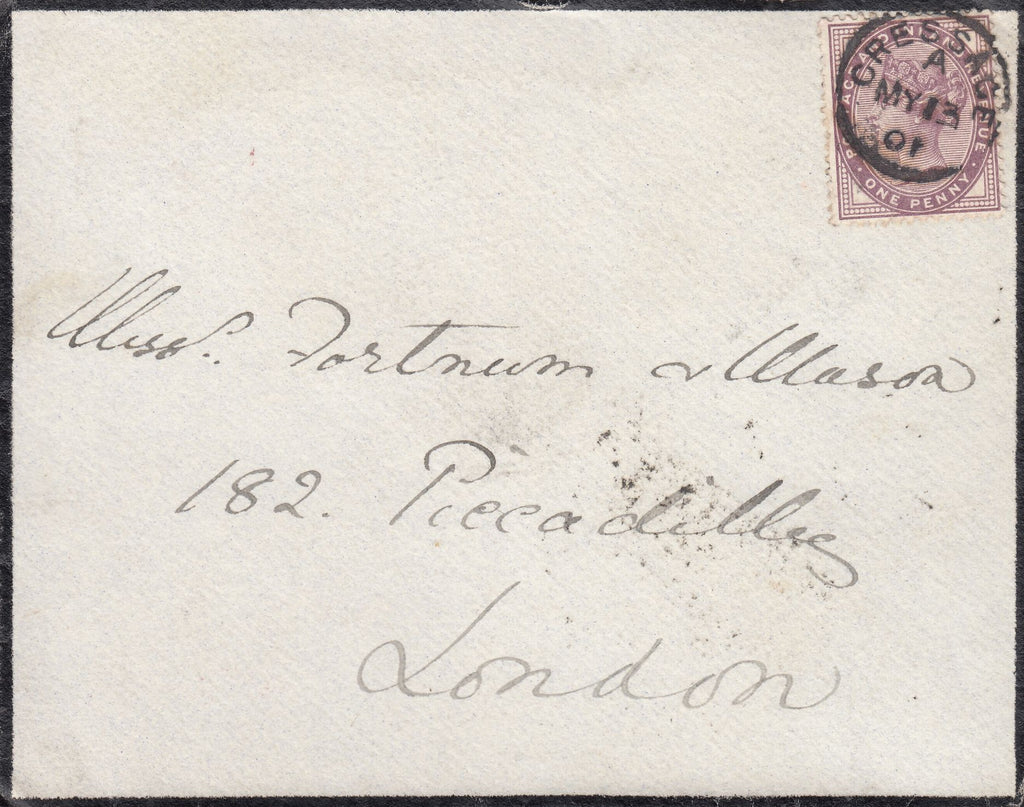 POSTAGE AND INLAND REVENUE
ONE PENNY
CRESSAGE
A
MY 13
01
Messrs. Fortnum & Mason
182. Piccadilly
London